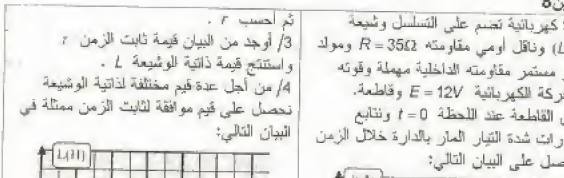 كهربائية تضم على التسلسل وشيعة
L) وناقل أومي مقاومته R = 35Ω ومولد
مستمر مقاومته الداخلية مهملة وقوته
حركة الكهربائية E = 12V وقاطعة.
القاطعة عند اللحظة t = 0 ونتابع
رات شدة التيار المار بالدارة خلال الزمن
صل على البيان التالي:
ثم احسب r .
3/ أوجد من البيان قيمة ثابت الزمن τ
واستنتج قيمة ذاتية الوشيعة L .
4/ من أجل عدة قيم مختلفة لذاتية الوشيعة
نحصل على قيم موافقة لثابت الزمن ممثلة في
البيان التالي:
L(H)